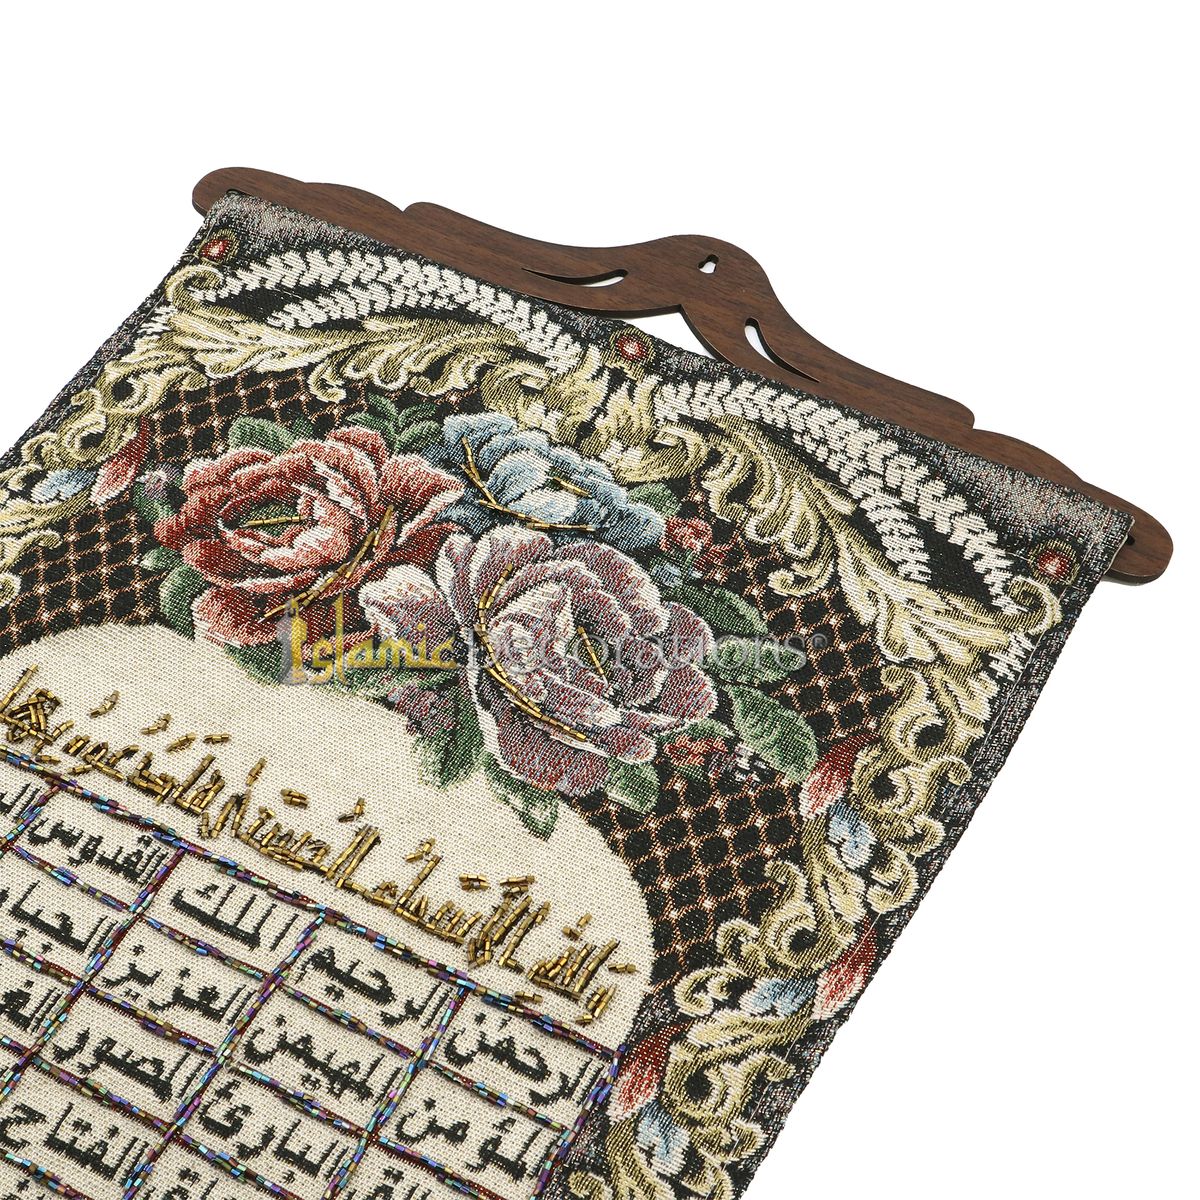 Islamic Decorations®
ولله الأسماء الحسنى فادعوه بها
الرحمن الرحيم الملك القدوس
المؤمن المهيمن العزيز الجبار
البارئ المصور
الفتاح